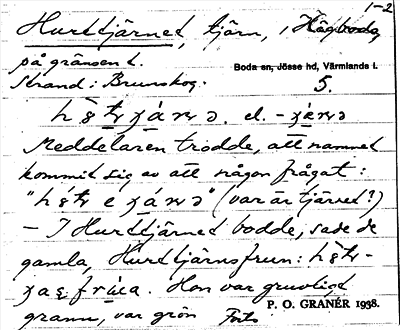 1-2
Hurttjärnet, tjärn, i Högboda,
på gränsen t.
Boda sn, Jösse hd, Värmlands l.
Strand i Brunskog.
5.
el.
Meddelaren trodde, att namnet
kommit sig av att någon frågat:
(var är tjärnet?)
– I Hurttjärnet bodde, sade de
gamla, Hurttjärnsfrun:
Hon var gruvligt
grann, var grön
Forts
P. O. GRANÉR 1938.